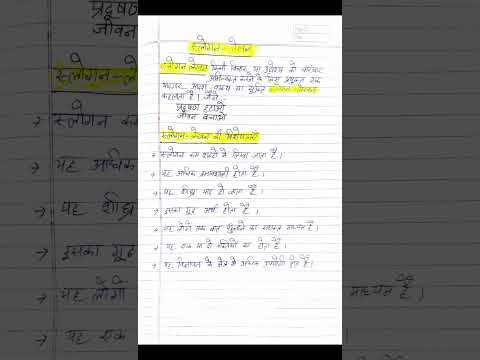 स्लोगन-लेखन
स्लोगन लेखन किसी विचार या उद्देश्य को बारंबार
अभिव्यक्त करने के लिए प्रयुक्त एक
यादगार आदर्श वाक्य या सूक्ति
कहलाता है। जैसे -
प्रदूषण हटाओ
जीवन बचाओ
स्लोगन-लेखन की विशेषताएँ
→ स्लोगन कम शब्दों में लिखा जाता है।
→ यह अधिक प्रभावशाली होता है।
→ यह शीघ्र याद हो जाता है।
→ इसका गूढ़ अर्थ होता है।
→ यह लोगों तक बात पहुँचाने का सशक्त माध्यम है।
→ यह एक या दो पंक्तियों का होता है।
→ यह विज्ञापन के क्षेत्र में अधिक उपयोगी होता है।
प्रदूषण
जीवन
स्लोगन-ले
→ स्लोगन क
→ यह अधिक
→ यह शीघ्र
→ इसका गूढ़
→ यह लोगों
माध्यम है।
→ यह एक